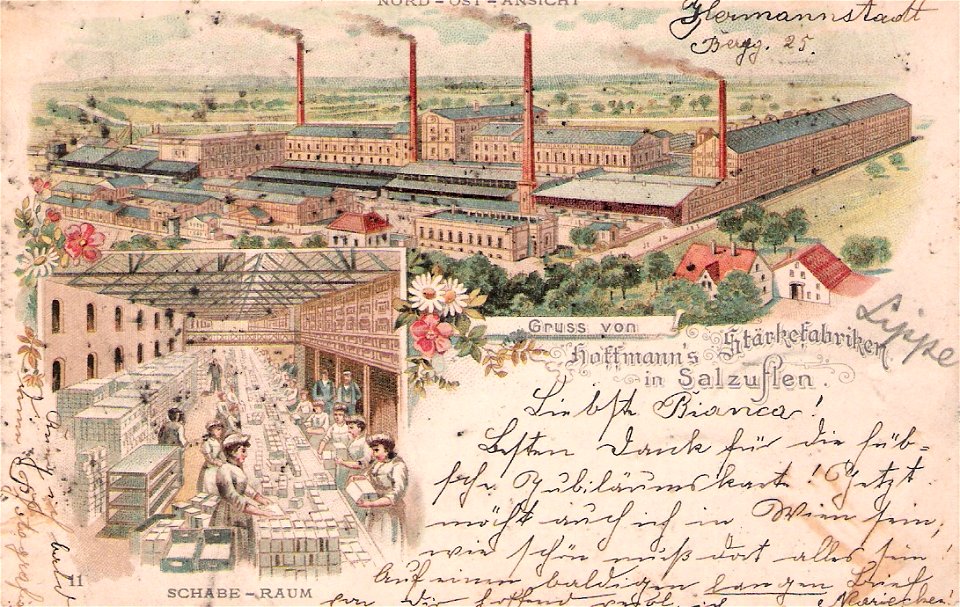 NORD-OST-ANSICHT
Hermannstadt
Bergg. 25.
Gruss von
Hoffmann's Stärkefabriken
in Salzuflen.
Lippe
Liebste Bianca!
Besten Dank für die hüb-
sche Jubiläumskarte! Jetzt
möcht auch ich in Wien sein,
wie schön muß dort alles sein!
Auf einen baldigen langen Brief
von dir hoffend verbl. ich Mariechen!
bald
11
SCHABE-RAUM